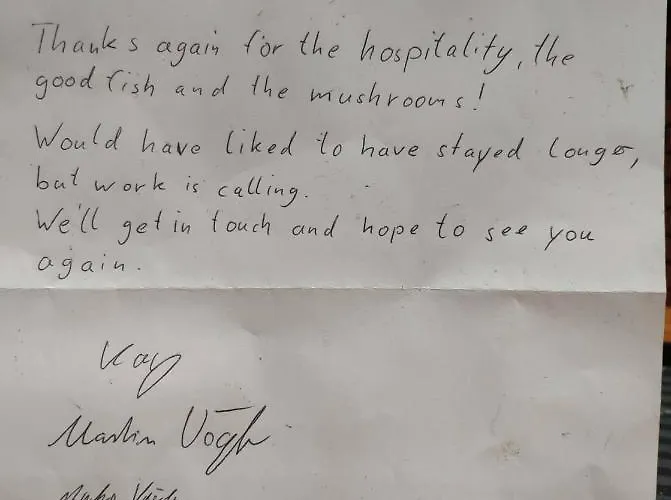 Thanks again for the hospitality, the
good fish and the mushrooms!
Would have liked to have stayed longer,
but work is calling.
We'll get in touch and hope to see you
again.
Kay
Martin